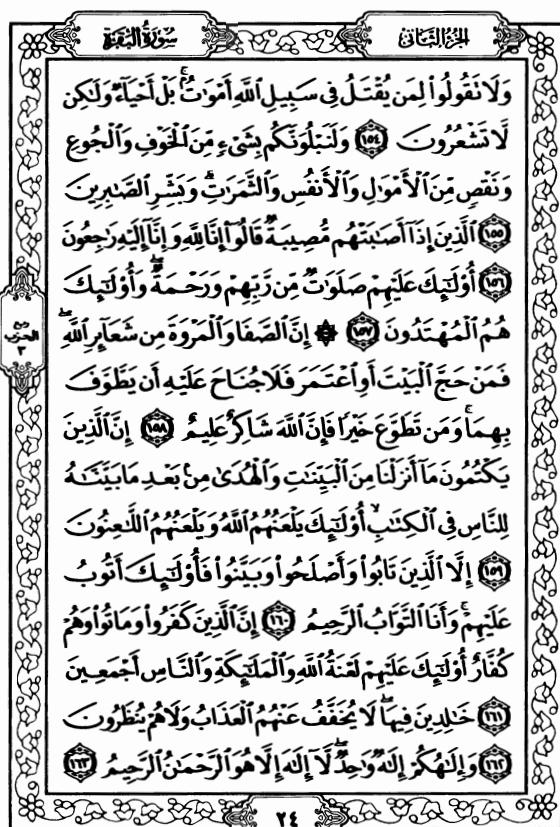 سورة البقرة
الجزء الثاني
وَلَا تَقُولُوا۟ لِمَن يُقْتَلُ فِى سَبِيلِ ٱللَّهِ أَمْوَٰتٌۢ ۚ بَلْ أَحْيَآءٌ وَلَـٰكِن
لَّا تَشْعُرُونَ ١٥٤ وَلَنَبْلُوَنَّكُم بِشَىْءٍ مِّنَ ٱلْخَوْفِ وَٱلْجُوعِ
وَنَقْصٍ مِّنَ ٱلْأَمْوَٰلِ وَٱلْأَنفُسِ وَٱلثَّمَرَٰتِ ۗ وَبَشِّرِ ٱلصَّـٰبِرِينَ
١٥٥ ٱلَّذِينَ إِذَآ أَصَـٰبَتْهُم مُّصِيبَةٌ قَالُوٓا۟ إِنَّا لِلَّهِ وَإِنَّآ إِلَيْهِ رَٰجِعُونَ
١٥٦ أُو۟لَـٰٓئِكَ عَلَيْهِمْ صَلَوَٰتٌ مِّن رَّبِّهِمْ وَرَحْمَةٌ ۖ وَأُو۟لَـٰٓئِكَ
هُمُ ٱلْمُهْتَدُونَ ١٥٧ ۞ إِنَّ ٱلصَّفَا وَٱلْمَرْوَةَ مِن شَعَآئِرِ ٱللَّهِ ۖ
فَمَنْ حَجَّ ٱلْبَيْتَ أَوِ ٱعْتَمَرَ فَلَا جُنَاحَ عَلَيْهِ أَن يَطَّوَّفَ
بِهِمَا ۚ وَمَن تَطَوَّعَ خَيْرًا فَإِنَّ ٱللَّهَ شَاكِرٌ عَلِيمٌ ١٥٨ إِنَّ ٱلَّذِينَ
يَكْتُمُونَ مَآ أَنزَلْنَا مِنَ ٱلْبَيِّنَـٰتِ وَٱلْهُدَىٰ مِنۢ بَعْدِ مَا بَيَّنَّـٰهُ
لِلنَّاسِ فِى ٱلْكِتَـٰبِ ۙ أُو۟لَـٰٓئِكَ يَلْعَنُهُمُ ٱللَّهُ وَيَلْعَنُهُمُ ٱللَّـٰعِنُونَ
١٥٩ إِلَّا ٱلَّذِينَ تَابُوا۟ وَأَصْلَحُوا۟ وَبَيَّنُوا۟ فَأُو۟لَـٰٓئِكَ أَتُوبُ
عَلَيْهِمْ ۚ وَأَنَا ٱلتَّوَّابُ ٱلرَّحِيمُ ١٦٠ إِنَّ ٱلَّذِينَ كَفَرُوا۟ وَمَاتُوا۟ وَهُمْ
كُفَّارٌ أُو۟لَـٰٓئِكَ عَلَيْهِمْ لَعْنَةُ ٱللَّهِ وَٱلْمَلَـٰٓئِكَةِ وَٱلنَّاسِ أَجْمَعِينَ
١٦١ خَـٰلِدِينَ فِيهَا ۖ لَا يُخَفَّفُ عَنْهُمُ ٱلْعَذَابُ وَلَا هُمْ يُنظَرُونَ
١٦٢ وَإِلَـٰهُكُمْ إِلَـٰهٌ وَٰحِدٌ ۖ لَّآ إِلَـٰهَ إِلَّا هُوَ ٱلرَّحْمَـٰنُ ٱلرَّحِيمُ ١٦٣
ربع
الحزب
٣
٢٤